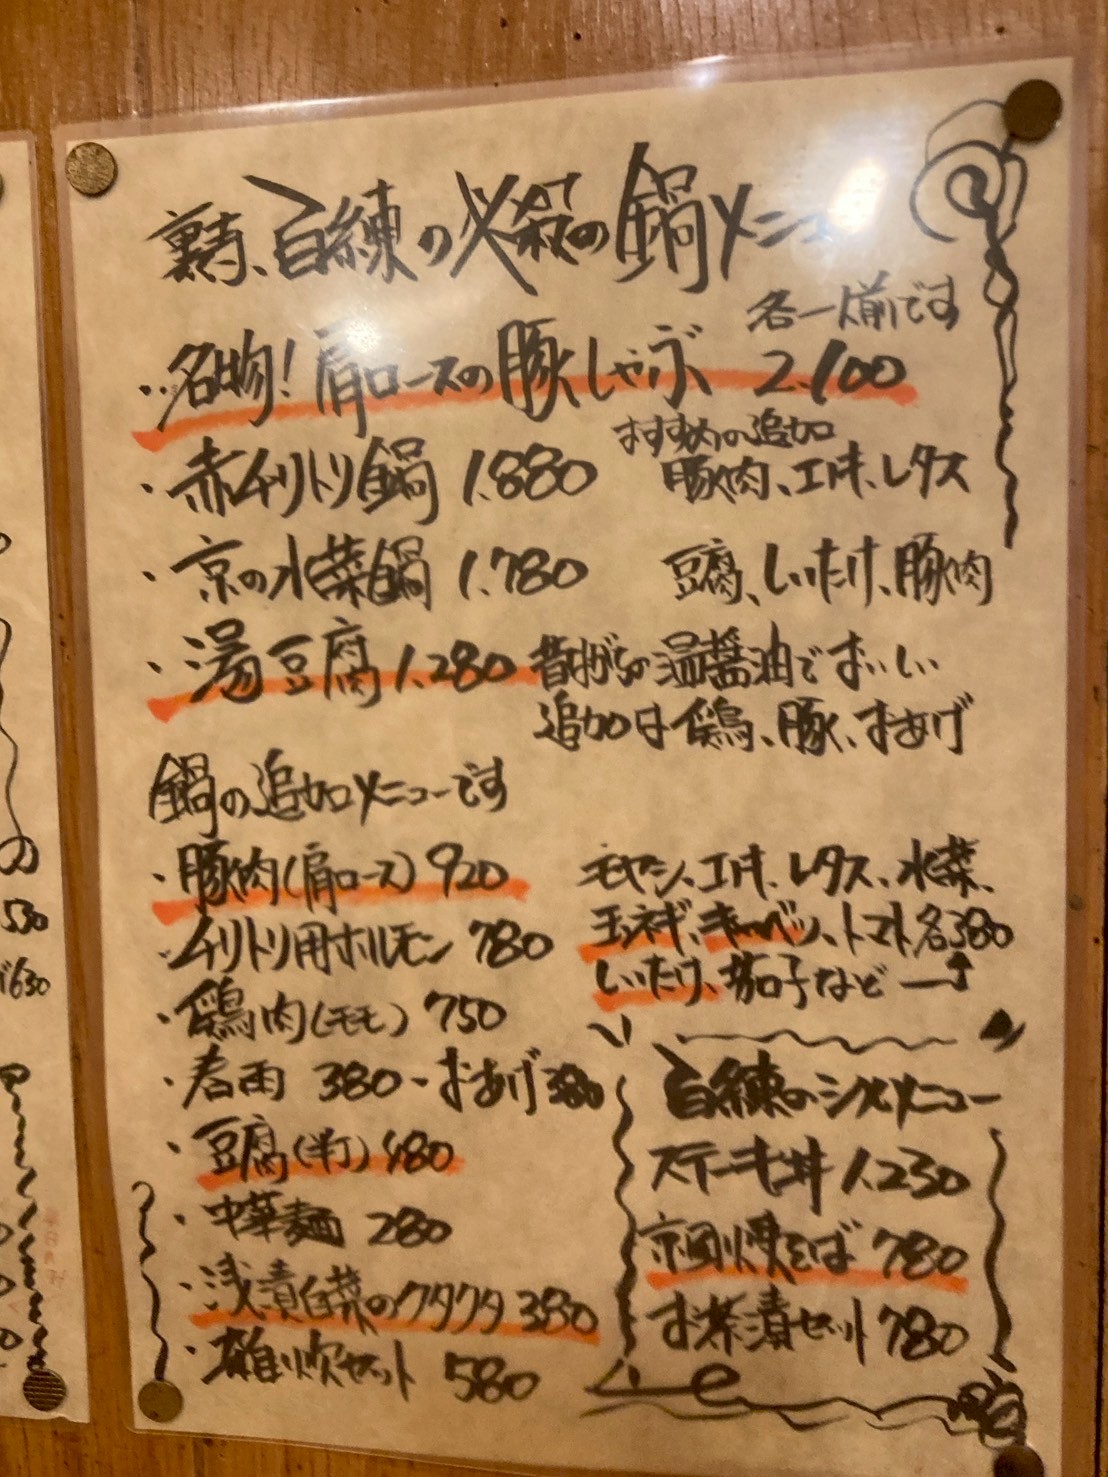 裏寺、百練の必殺の鍋メニュー
各一人前です
・名物!肩ロースの豚しゃぶ 2.100
おすすめの追加
・赤ムリトリ鍋 1.880 豚肉、エノキ、レタス
・京の水菜鍋 1.780 豆腐、しいたけ、豚肉
・湯豆腐 1.280 昔ながらの温醤油でおいしい
追加は鶏、豚、おあげ
鍋の追加メニューです
・豚肉(肩ロース) 920
・ムリトリ用ホルモン 780
・鶏肉(モモ) 750
・春雨 380 ・おあげ 380
・豆腐(半丁) 480
・中華麺 280
・浅漬白菜のクタクタ 380
・雑炊セット 580
モヤシ、エノキ、レタス、水菜、
玉ネギ、キャベツ、トマト各380
しいたけ、茄子など
百練のシメメニュー
ステーキ丼 1.250
京風焼そば 780
お茶漬セット 780
530
630